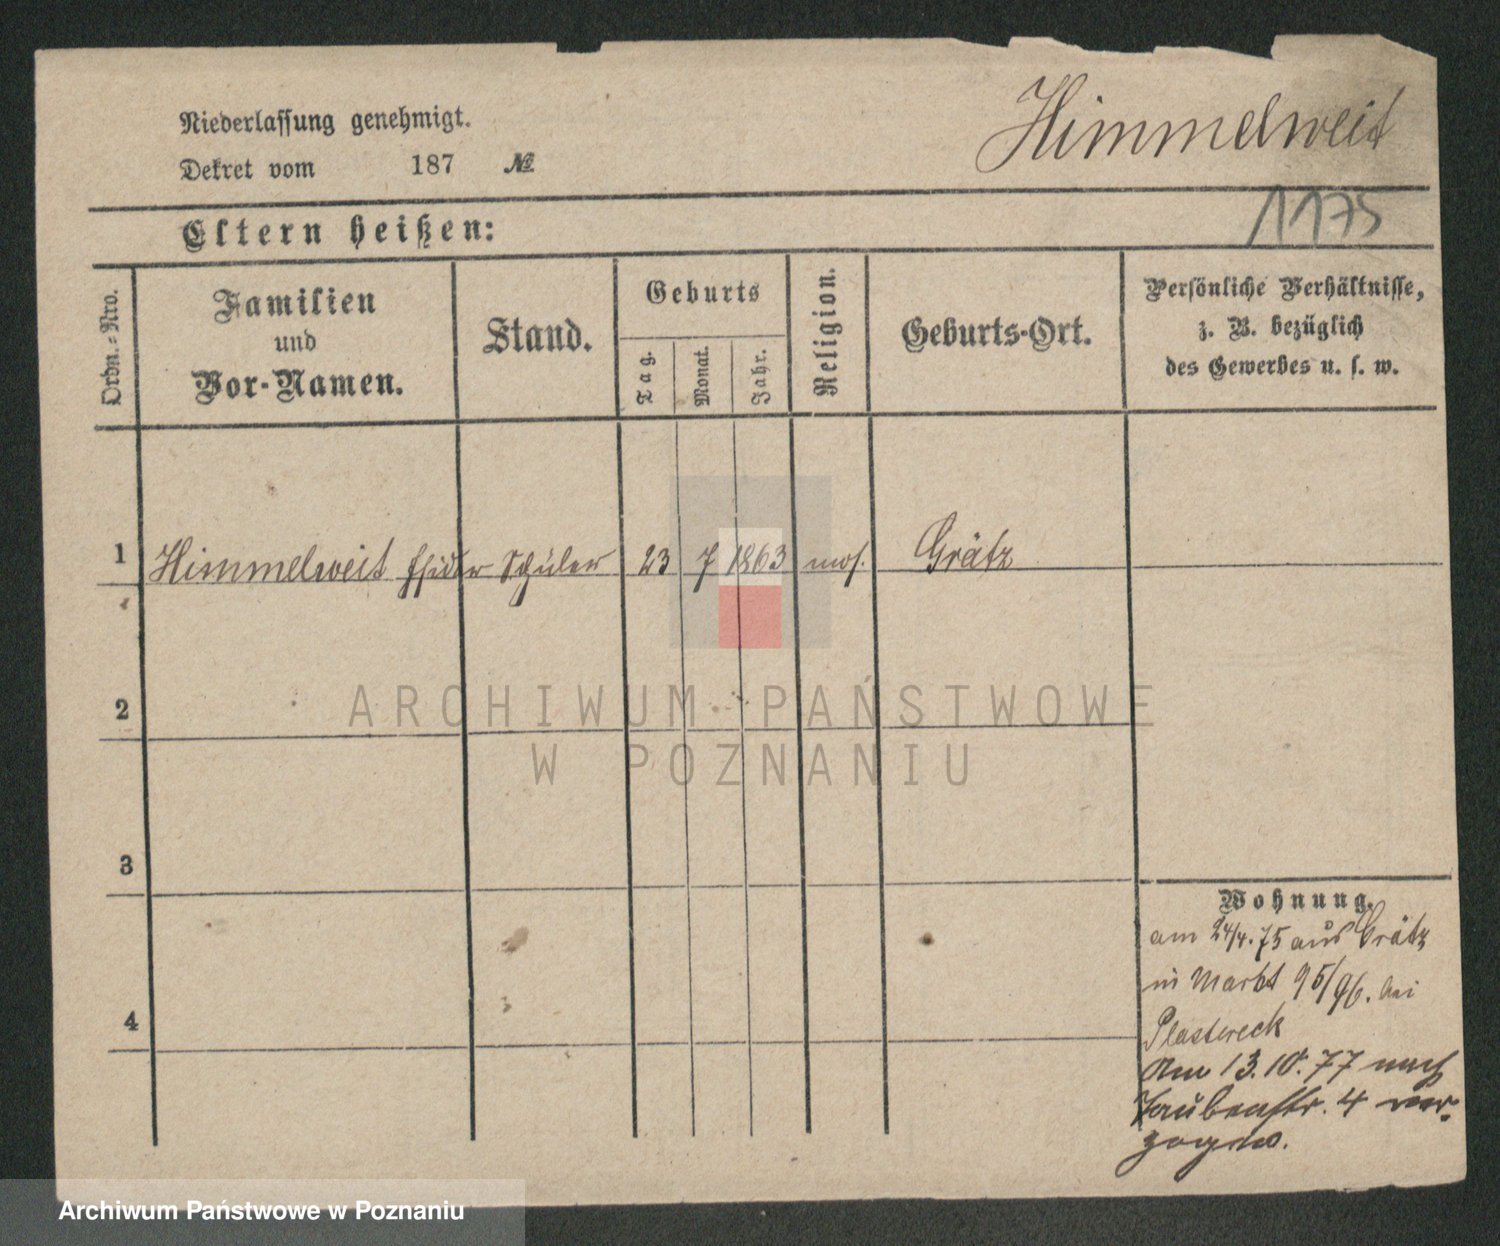 Himmelweit
Niederlassung genehmigt.
Dekret vom 187 №
1175
Eltern heißen:
Ordn.-Nro.
Familien
und
Vor-Namen.
Stand.
Geburts
Tag.
Monat.
Jahr.
Religion.
Geburts-Ort.
Persönliche Verhältnisse,
z. B. bezüglich
des Gewerbes u. s. w.
1 Himmelweit Isidor Schüler 23 7 1863 mos. Grätz
2
ARCHIWUM PAŃSTWOWE
W POZNANIU
3
4
Wohnung.
am 24/4. 75 aus Grätz
in Markt 95/96. bei
Plastereck
Am 13.10.77 nach
Taubenstr. 4 ver-
zogen.
Archiwum Państwowe w Poznaniu